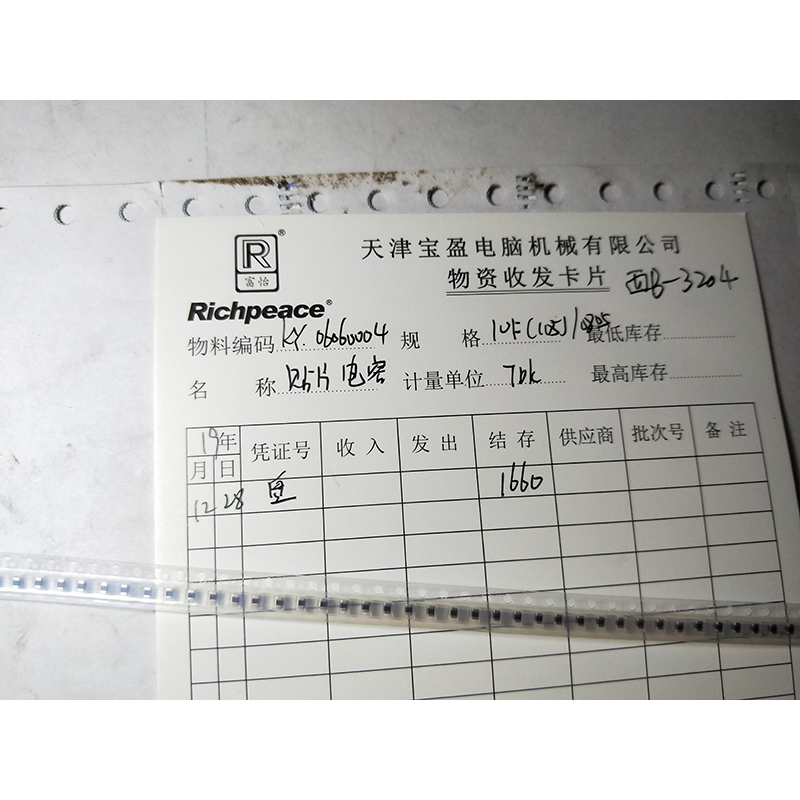 R®
富怡
Richpeace®
天津宝盈电脑机械有限公司
物资收发卡片 西B-3204
物料编码 KY.06060004 规格 1UF(105)/0805 最低库存
名称 贴片电容 计量单位 最高库存
19年 凭证号 收入 发出 结存 供应商 批次号 备注
月 日
12 28 1660